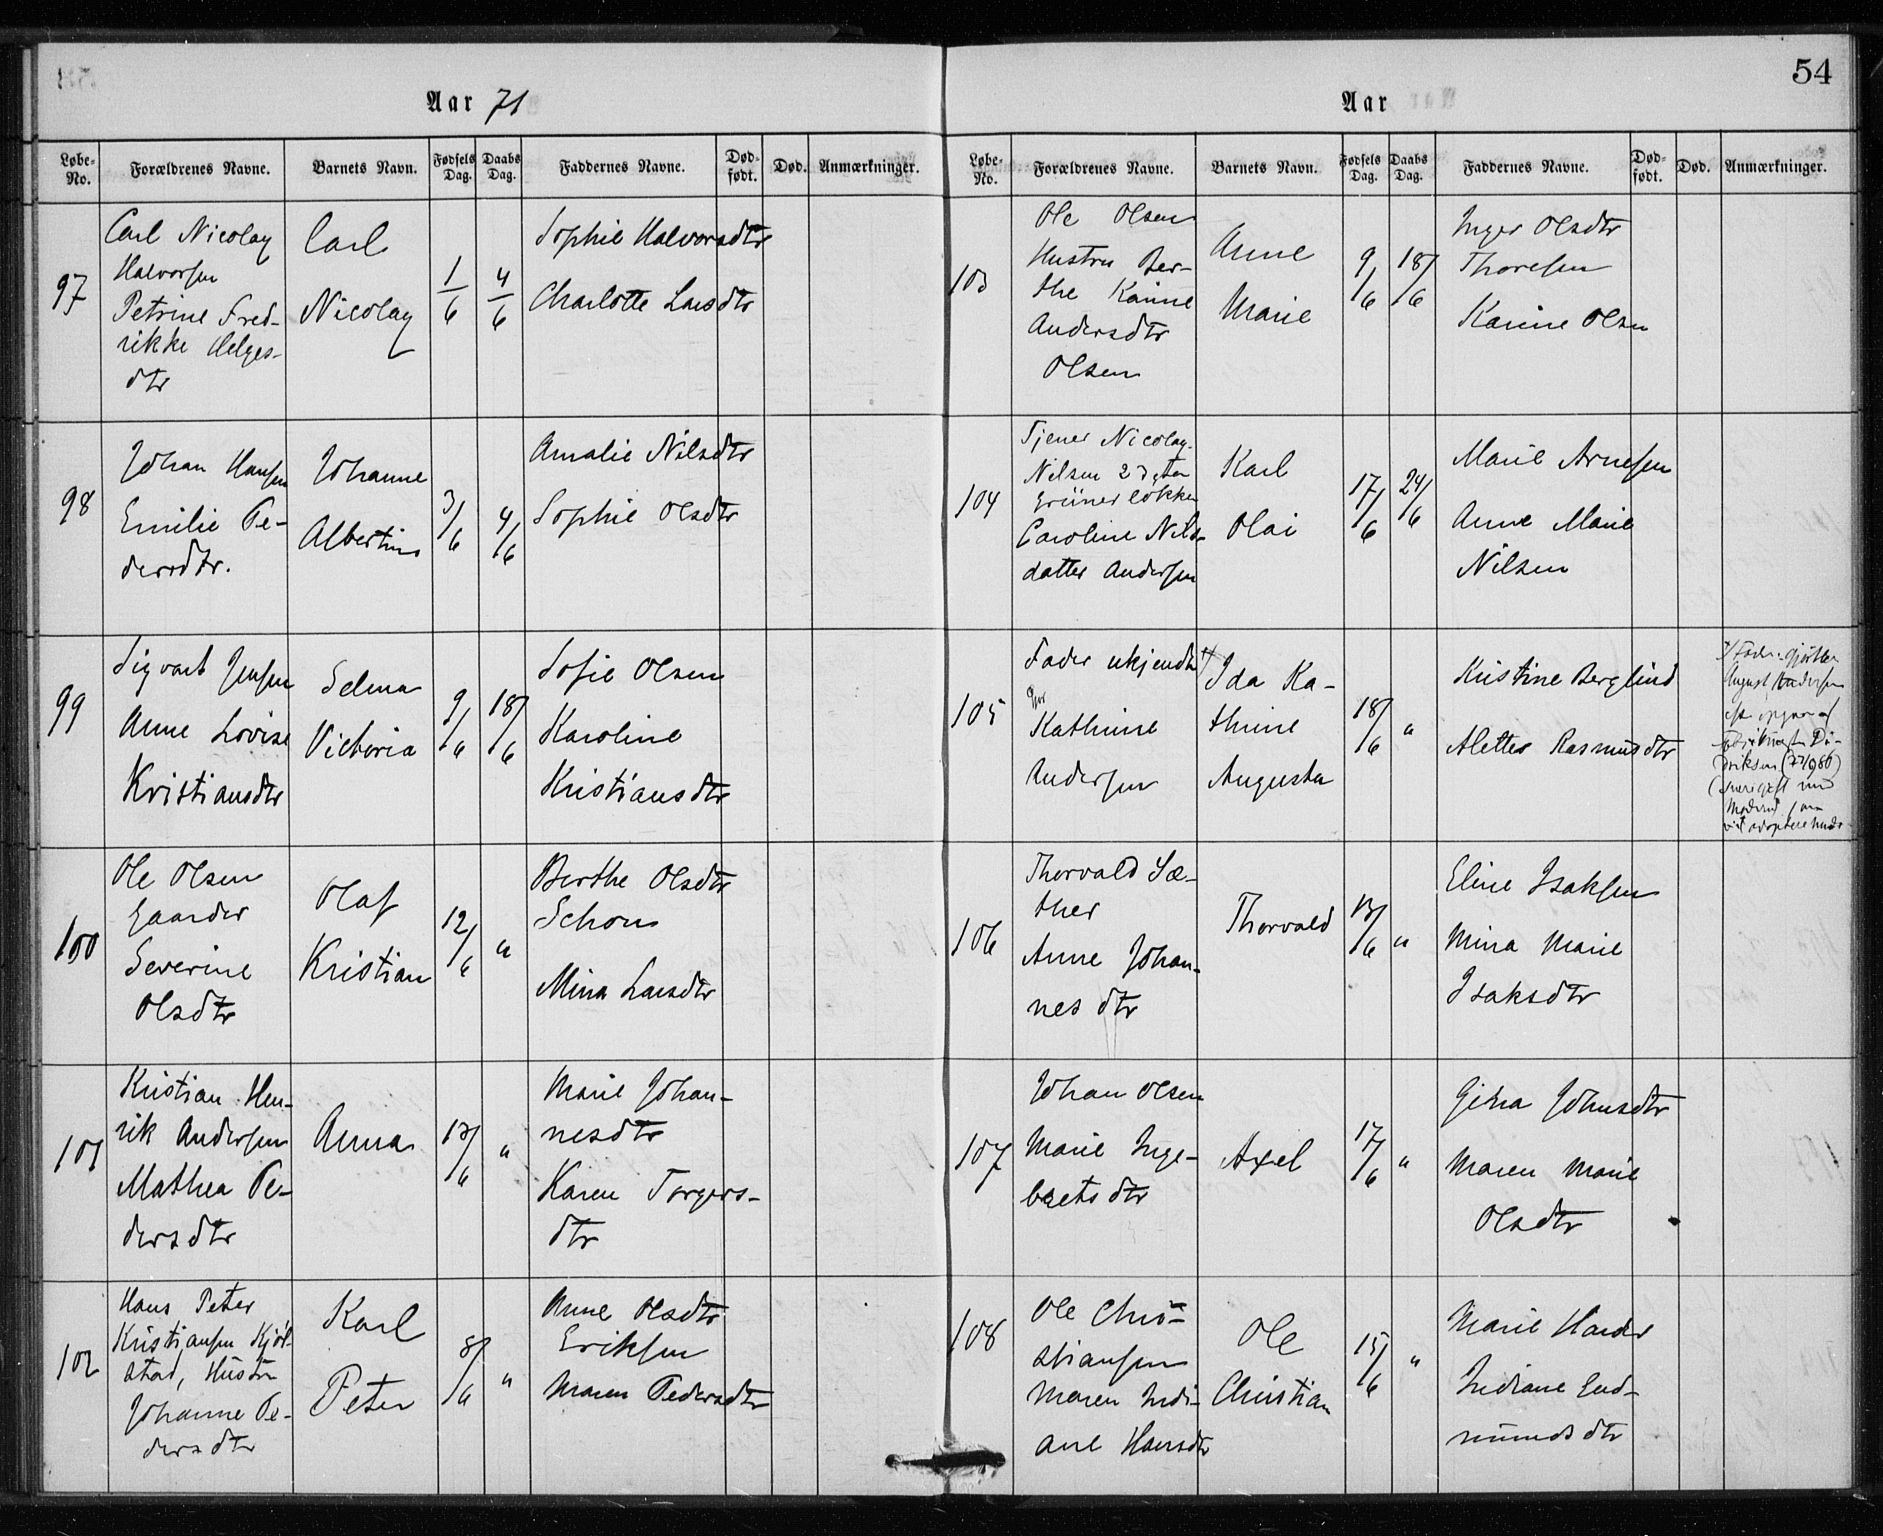 54
Aar 71
Løbe-No. Forældrenes Navne. Barnets Navn. Fødsels Dag. Daabs Dag. Faddernes Navne. Død-født. Død. Anmærkninger.
97
Carl Nicolay
Halvorsen
Petrine Fred-
rikke Helges-
dtr
Carl
Nicolay
1/6
4/6
Sophie Halvorsdtr
Charlotte Larsdtr
98
Johan Hansen
Emilie Pe-
dersdtr.
Johanne
Albertine
3/6
4/6
Amalie Nilsdtr
Sophie Olsdtr
99
Sigvart Jensen
Anne Lovise
Kristiansdtr
Selma
Victoria
9/6
18/6
Sofie Olsen
Karoline
Kristiansdtr
100
Ole Olsen
Gaarder
Severine
Olsdtr
Olaf
Kristian
12/6
"
Berthe Olsdtr
Schou
Mina Larsdtr
101
Kristian Hen-
rik Andersen
Mathea Pe-
dersdtr
Anna
13/6
"
Marie Johan-
nesdtr
Karen Torgers-
dtr
102
Hans Peter
Kristiansen Kjöl-
stad, Hustru
Johanne Pe-
dersdtr
Karl
Peter
8/6
"
Anne Olsdtr
Eriksen
Maren Pedersdtr
Aar
Løbe-No. Forældrenes Navne. Barnets Navn. Fødsels Dag. Daabs Dag. Faddernes Navne. Død-født. Død. Anmærkninger.
103
Ole Olsen
Hustru Ber-
the Karine
Andersdtr
Olsen
Anne
Marie
9/6
18/6
Inger Olsdtr
Thoresen
Karine Olsen
104
Tjener Nicolay
Nilsen
Grüner løkken
Caroline Nils-
datter Andersen
Karl
Olai
17/6
24/6
Marie Arnesen
Anne Marie
Nilsen
105
Fader ukjendt
Kathrine
Andersen
Ida Ka-
thrine
Augusta
18/6
"
Kristine Berglind
Alette Rasmusdtr
August Andersen
106
Thorvald Sæ-
ther
Anne Johan-
nesdtr
Thorvald
13/6
"
Eline Isaksen
Mina Marie
Isaksdtr
107
Johan Olsen
Marie Inge-
bretsdtr
Axel
17/6
"
Gina Johnsdtr
Maren Marie
Olsdtr
108
Ole Chri-
stiansen
Maren Indi-
ane Hansdtr
Ole
Christian
15/6
"
Marie
Indiane Gud-
mundsdtr